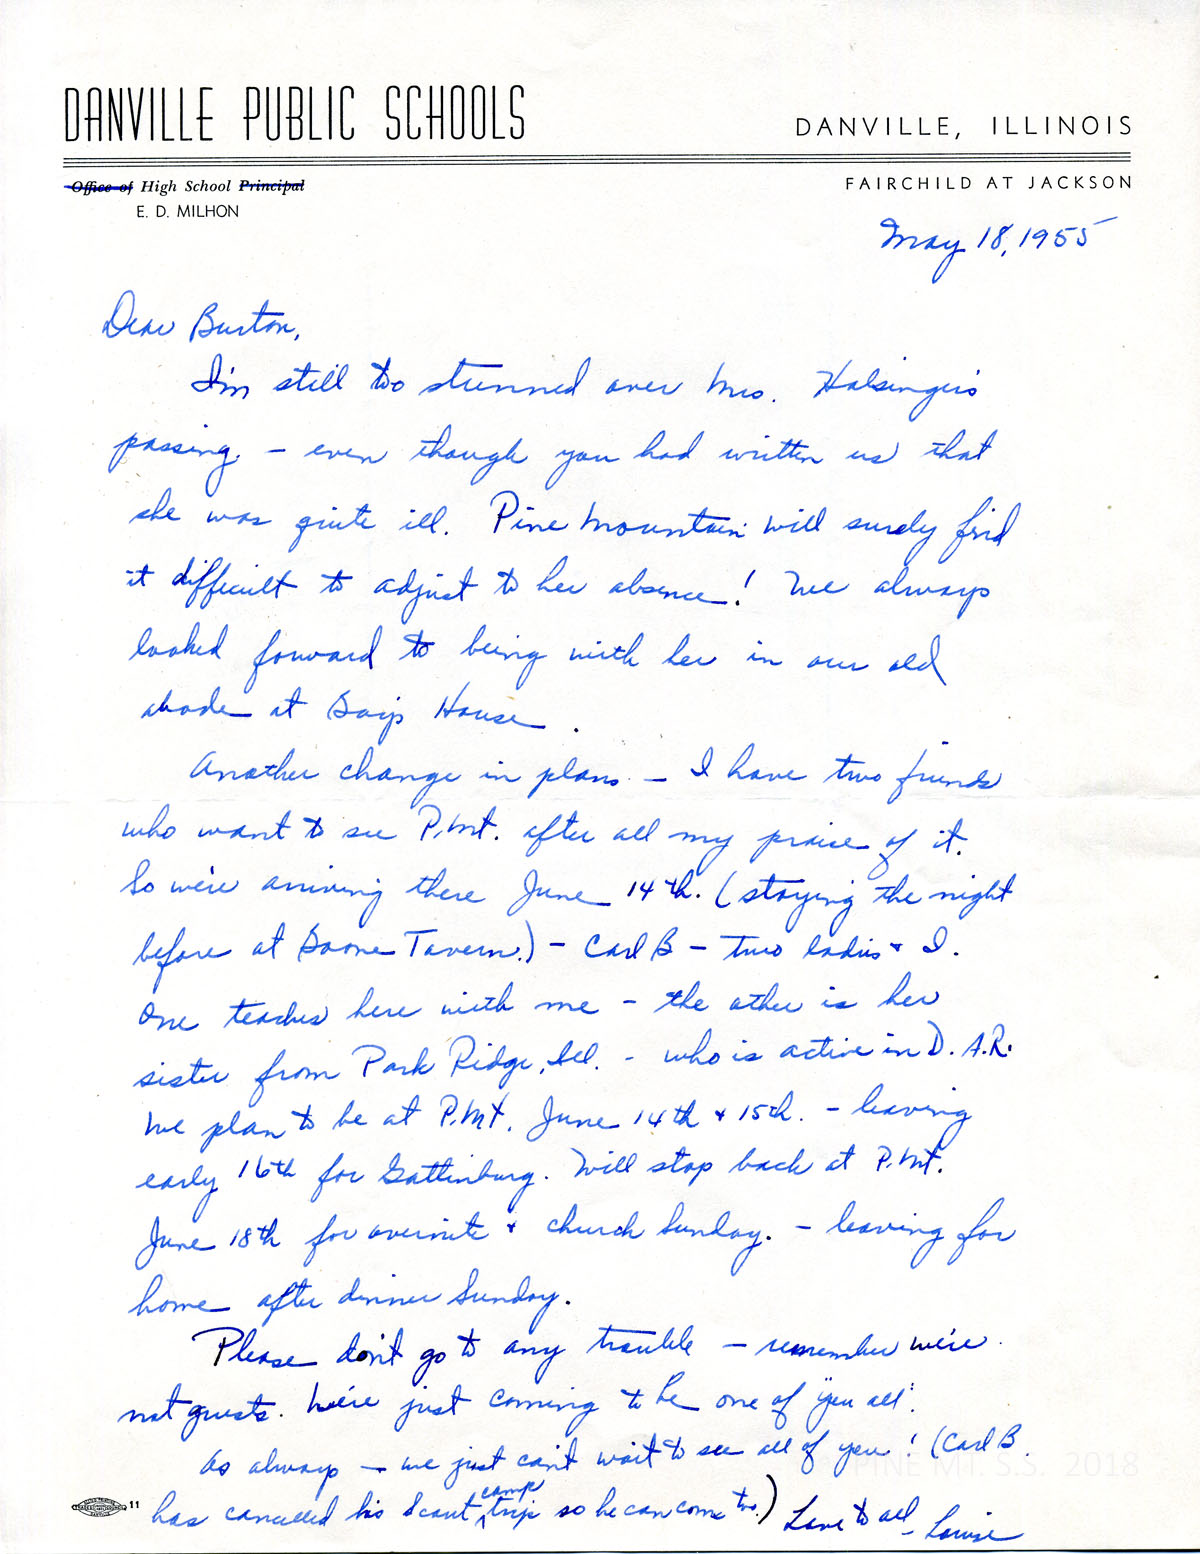 DANVILLE PUBLIC SCHOOLS
DANVILLE, ILLINOIS
Office of High School Principal
E. D. MILHON
FAIRCHILD AT JACKSON
May 18, 1955
Dear Burton,
I'm still too stunned over Mrs. Halsinger's
passing. – even though you had written us that
she was quite ill. Pine Mountain will surely find
it difficult to adjust to her absence! We always
looked forward to being with her in our old
abode at Zaip House.
Another change in plans – I have two friends
who want to see P.Mt. after all my praise of it.
So we're arriving there June 14th. (staying the night
before at Boone Tavern.) – Carl B – two ladies + I.
One teaches here with me – the other is her
sister from Park Ridge, Ill. – who is active in D.A.R.
We plan to be at P.Mt. June 14th + 15th. – leaving
early 16th for Gattinburg. Will stop back at P.Mt.
June 18th for overnite + church Sunday. – leaving for
home after dinner Sunday.
Please don't go to any trouble – remember we're
not guests. We're just coming to be one of "you all".
As always – we just can't wait to see all of you! (Carl B
has cancelled his Scout camp trip so he can come too.) Love to all – Louise
11
PINE MT. S.S. 2018